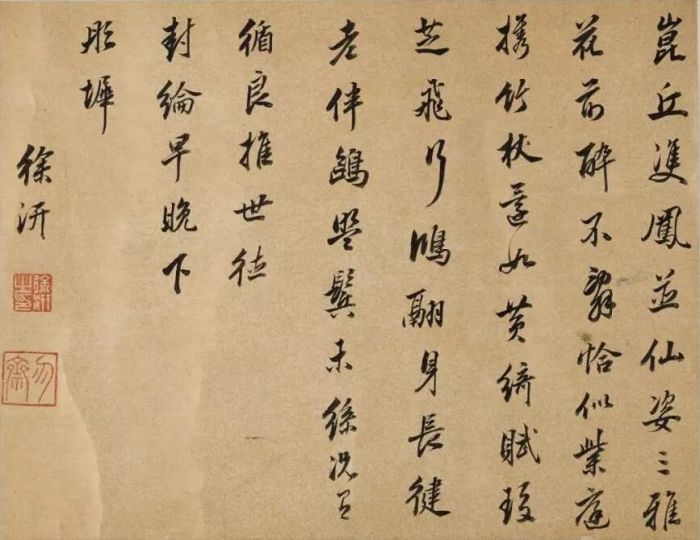 崑丘雙鳳並仙姿三雅
花前醉不辭恰似紫庭
攜竹杖還如黃綺賦瓊
芝飛行鴻翮身長健
老伴鷗盟鬢未絲況有
循良推世德
封綸早晚下
彤墀
徐汧
徐汧之印
勿齋